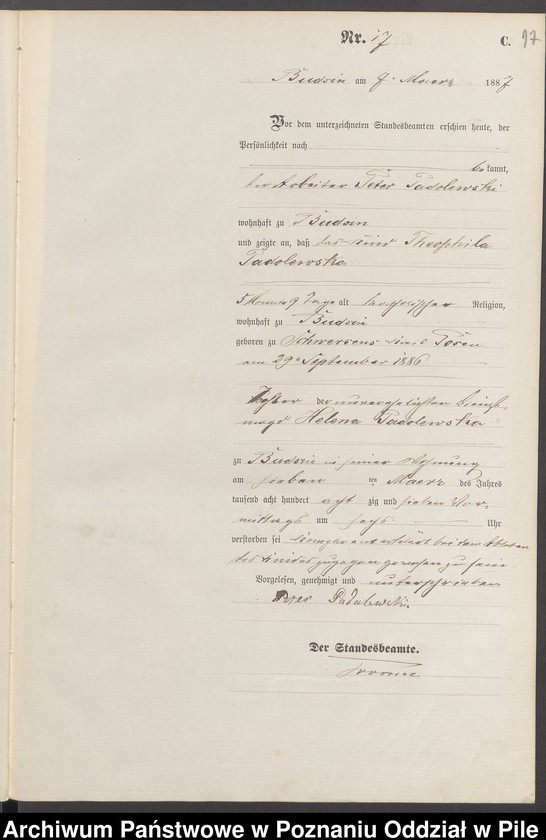 Nr. 17
C. 17
Budsin am 7. Maerz 1887
Vor dem unterzeichneten Standesbeamten erschien heute, der
Persönlichkeit nach
bekannt,
der Arbeiter Peter Padolewski
wohnhaft zu Budsin
und zeigte an, daß das Kind Theophila
Padolewska
5 Monate 9 Tage alt katholischer Religion,
wohnhaft zu Budsin
geboren zu Schwersens Kreis Posen
am 29. September 1886
Tochter der unverehelichten
magd Helena Padolewska
zu Budsin in seiner Wohnung
am sieben ten Maerz des Jahres
tausend acht hundert acht zig und sieben Vor-
mittags um sechs Uhr
verstorben sei
des Kindes zugegen gewesen zu sein.
Vorgelesen, genehmigt und unterschrieben
Peter
Der Standesbeamte.
Archiwum Państwowe w Poznaniu Oddział w Pile